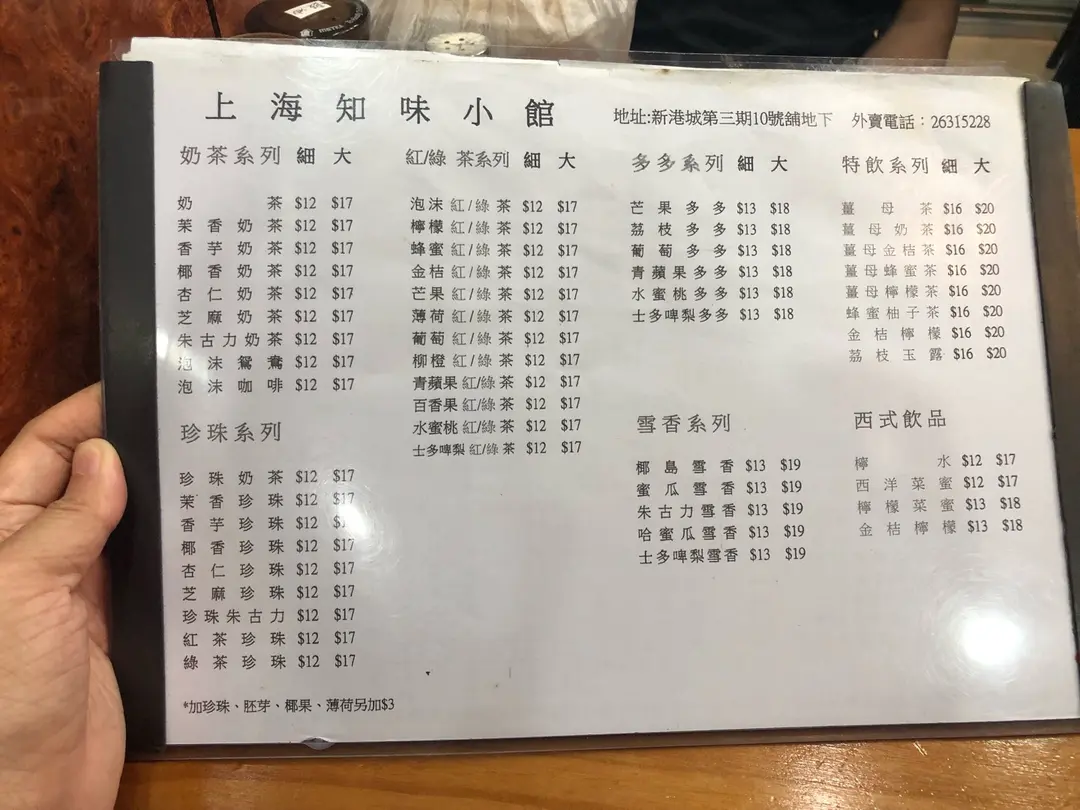 上海知味小館
地址:新港城第三期10號舖地下 外賣電話：26315228
奶茶系列 細 大
奶茶 $12 $17
茉香奶茶 $12 $17
香芋奶茶 $12 $17
椰香奶茶 $12 $17
杏仁奶茶 $12 $17
芝麻奶茶 $12 $17
朱古力奶茶 $12 $17
泡沫鴛鴦 $12 $17
泡沫咖啡 $12 $17
珍珠系列
珍珠奶茶 $12 $17
茉香珍珠 $12 $17
香芋珍珠 $12 $1
椰香珍珠 $12 $17
杏仁珍珠 $12 $17
芝麻珍珠 $12 $17
珍珠朱古力 $12 $17
紅茶珍珠 $12 $17
綠茶珍珠 $12 $17
*加珍珠、胚芽、椰果、薄荷另加$3
紅/綠 茶系列 細 大
泡沫紅/綠茶 $12 $17
檸檬紅/綠茶 $12 $17
蜂蜜紅/綠茶 $12 $17
金桔紅/綠茶 $12 $17
芒果紅/綠茶 $12 $17
薄荷紅/綠茶 $12 $17
葡萄紅/綠茶 $12 $17
柳橙紅/綠茶 $12 $17
青蘋果紅/綠茶 $12 $17
百香果紅/綠茶 $12 $17
水蜜桃紅/綠茶 $12 $17
士多啤梨紅/綠茶 $12 $17
多多系列 細 大
芒果多多 $13 $18
荔枝多多 $13 $18
葡萄多多 $13 $18
青蘋果多多 $13 $18
水蜜桃多多 $13 $18
士多啤梨多多 $13 $18
雪香系列
椰島雪香 $13 $19
蜜瓜雪香 $13 $19
朱古力雪香 $13 $19
哈蜜瓜雪香 $13 $19
士多啤梨雪香 $13 $19
特飲系列 細 大
薑母茶 $16 $20
薑母奶茶 $16 $20
薑母金桔茶 $16 $20
薑母蜂蜜茶 $16 $20
薑母檸檬茶 $16 $20
蜂蜜柚子茶 $16 $20
金桔檸檬 $16 $20
荔枝玉露 $16 $20
西式飲品
檸水 $12 $17
西洋菜蜜 $12 $17
檸檬菜蜜 $13 $18
金桔檸檬 $13 $18